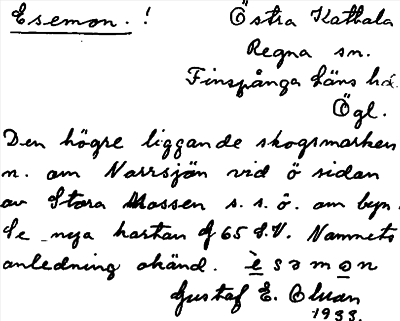 Esemon. !
Östra Katbala
Regna sn.
Finspånga Läns hd.
Ögl.
Den högre liggande skogsmarken
n. om Norrsjön vid ö sidan
av Stora Mossen s.s.ö. om byn.
Se nya kartan J 65 S.V. Namnets
anledning okänd. èsəmən
Gustaf E.
1933.